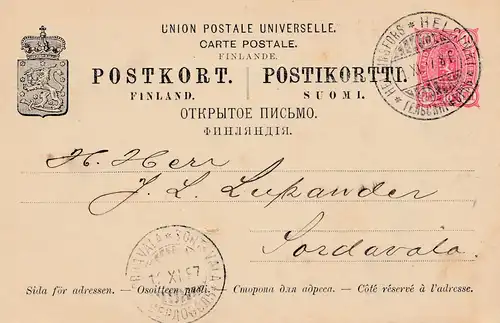 UNION POSTALE UNIVERSELLE.
CARTE POSTALE.
FINLANDE.
POSTKORT. POSTIKORTTI.
FINLAND. SUOMI.
ОТКРЫТОЕ ПИСЬМО.
ФИНЛЯНДІЯ.
HELSINGFORS * HELSINKI *
H. Herr
J. L. Lupander
Sordavala
SORTAVALA
XI 97
Sida för adressen. — Osoitteen puoli. — Сторона для адреса. — Côté réservé à l'adresse.